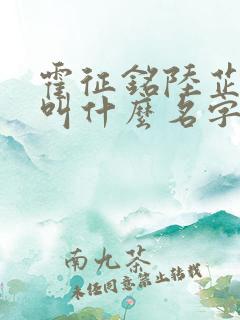 霍征銘陸芷
叫什麼名字
南九茶
未经同意禁止转载